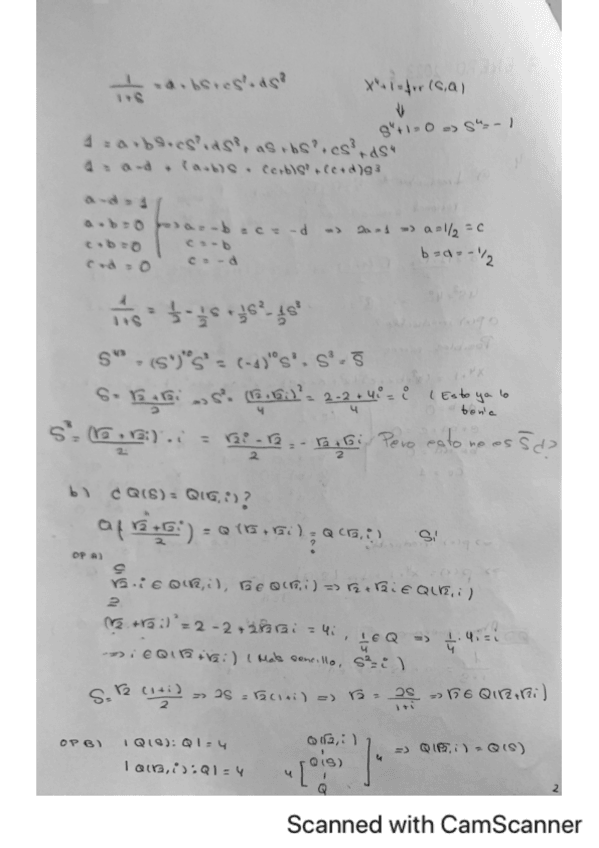 1/(1+S) = a + bS + cS² + dS³
X⁴+1 = Irr (S,Q)
⇓
S⁴+1=0 => S⁴=-1
1 = a+bS+cS²+dS³+aS+bS²+cS³+dS⁴
1 = a-d + (a+b)S + (c+b)S² + (c+d)S³
a-d = 1
a+b=0 => a=-b = c = -d => 2a=1 => a=1/2 = c
c+b=0 c=-b b=d=-1/2
c+d=0 c=-d
1/(1+S) = 1/2 - 1/2 S + 1/2 S² - 1/2 S³
S⁴³ = (S⁴)¹⁰ S³ = (-1)¹⁰ S³ = S³ = S̄
S = (√2+√2i)/2 => S² = (√2+√2i)²/4 = (2-2+4i)/4 = i (Esto ya lo
tenía
S³ = (√2+√2i)/2 · i = (√2i-√2)/2 = - (√2+√2i)/2 Pero esto no es S̄ ¿?
b) ¿ Q(S) = Q(√2,i)?
Q((√2+√2i)/2) = Q(√2+√2i) =? Q(√2,i) Sí
OP A)
⊆
√2·i ∈ Q(√2,i), √2 ∈ Q(√2,i) => √2+√2i ∈ Q(√2,i)
⊇
(√2+√2i)² = 2-2+2√2√2i = 4i, 1/4 ∈ Q => 1/4·4i=i
=> i ∈ Q(√2+√2i) (Más sencillo, S²=i)
S = √2 (1+i)/2 => 2S = √2(1+i) => √2 = 2S/(1+i) => √2 ∈ Q(√2+√2i)
OP B) |Q(S):Q|=4 Q(√2,i)
|Q(√2,i):Q|=4 4 [ Q(S) ] 4 => Q(√2,i) = Q(S)
Q
2
Scanned with CamScanner